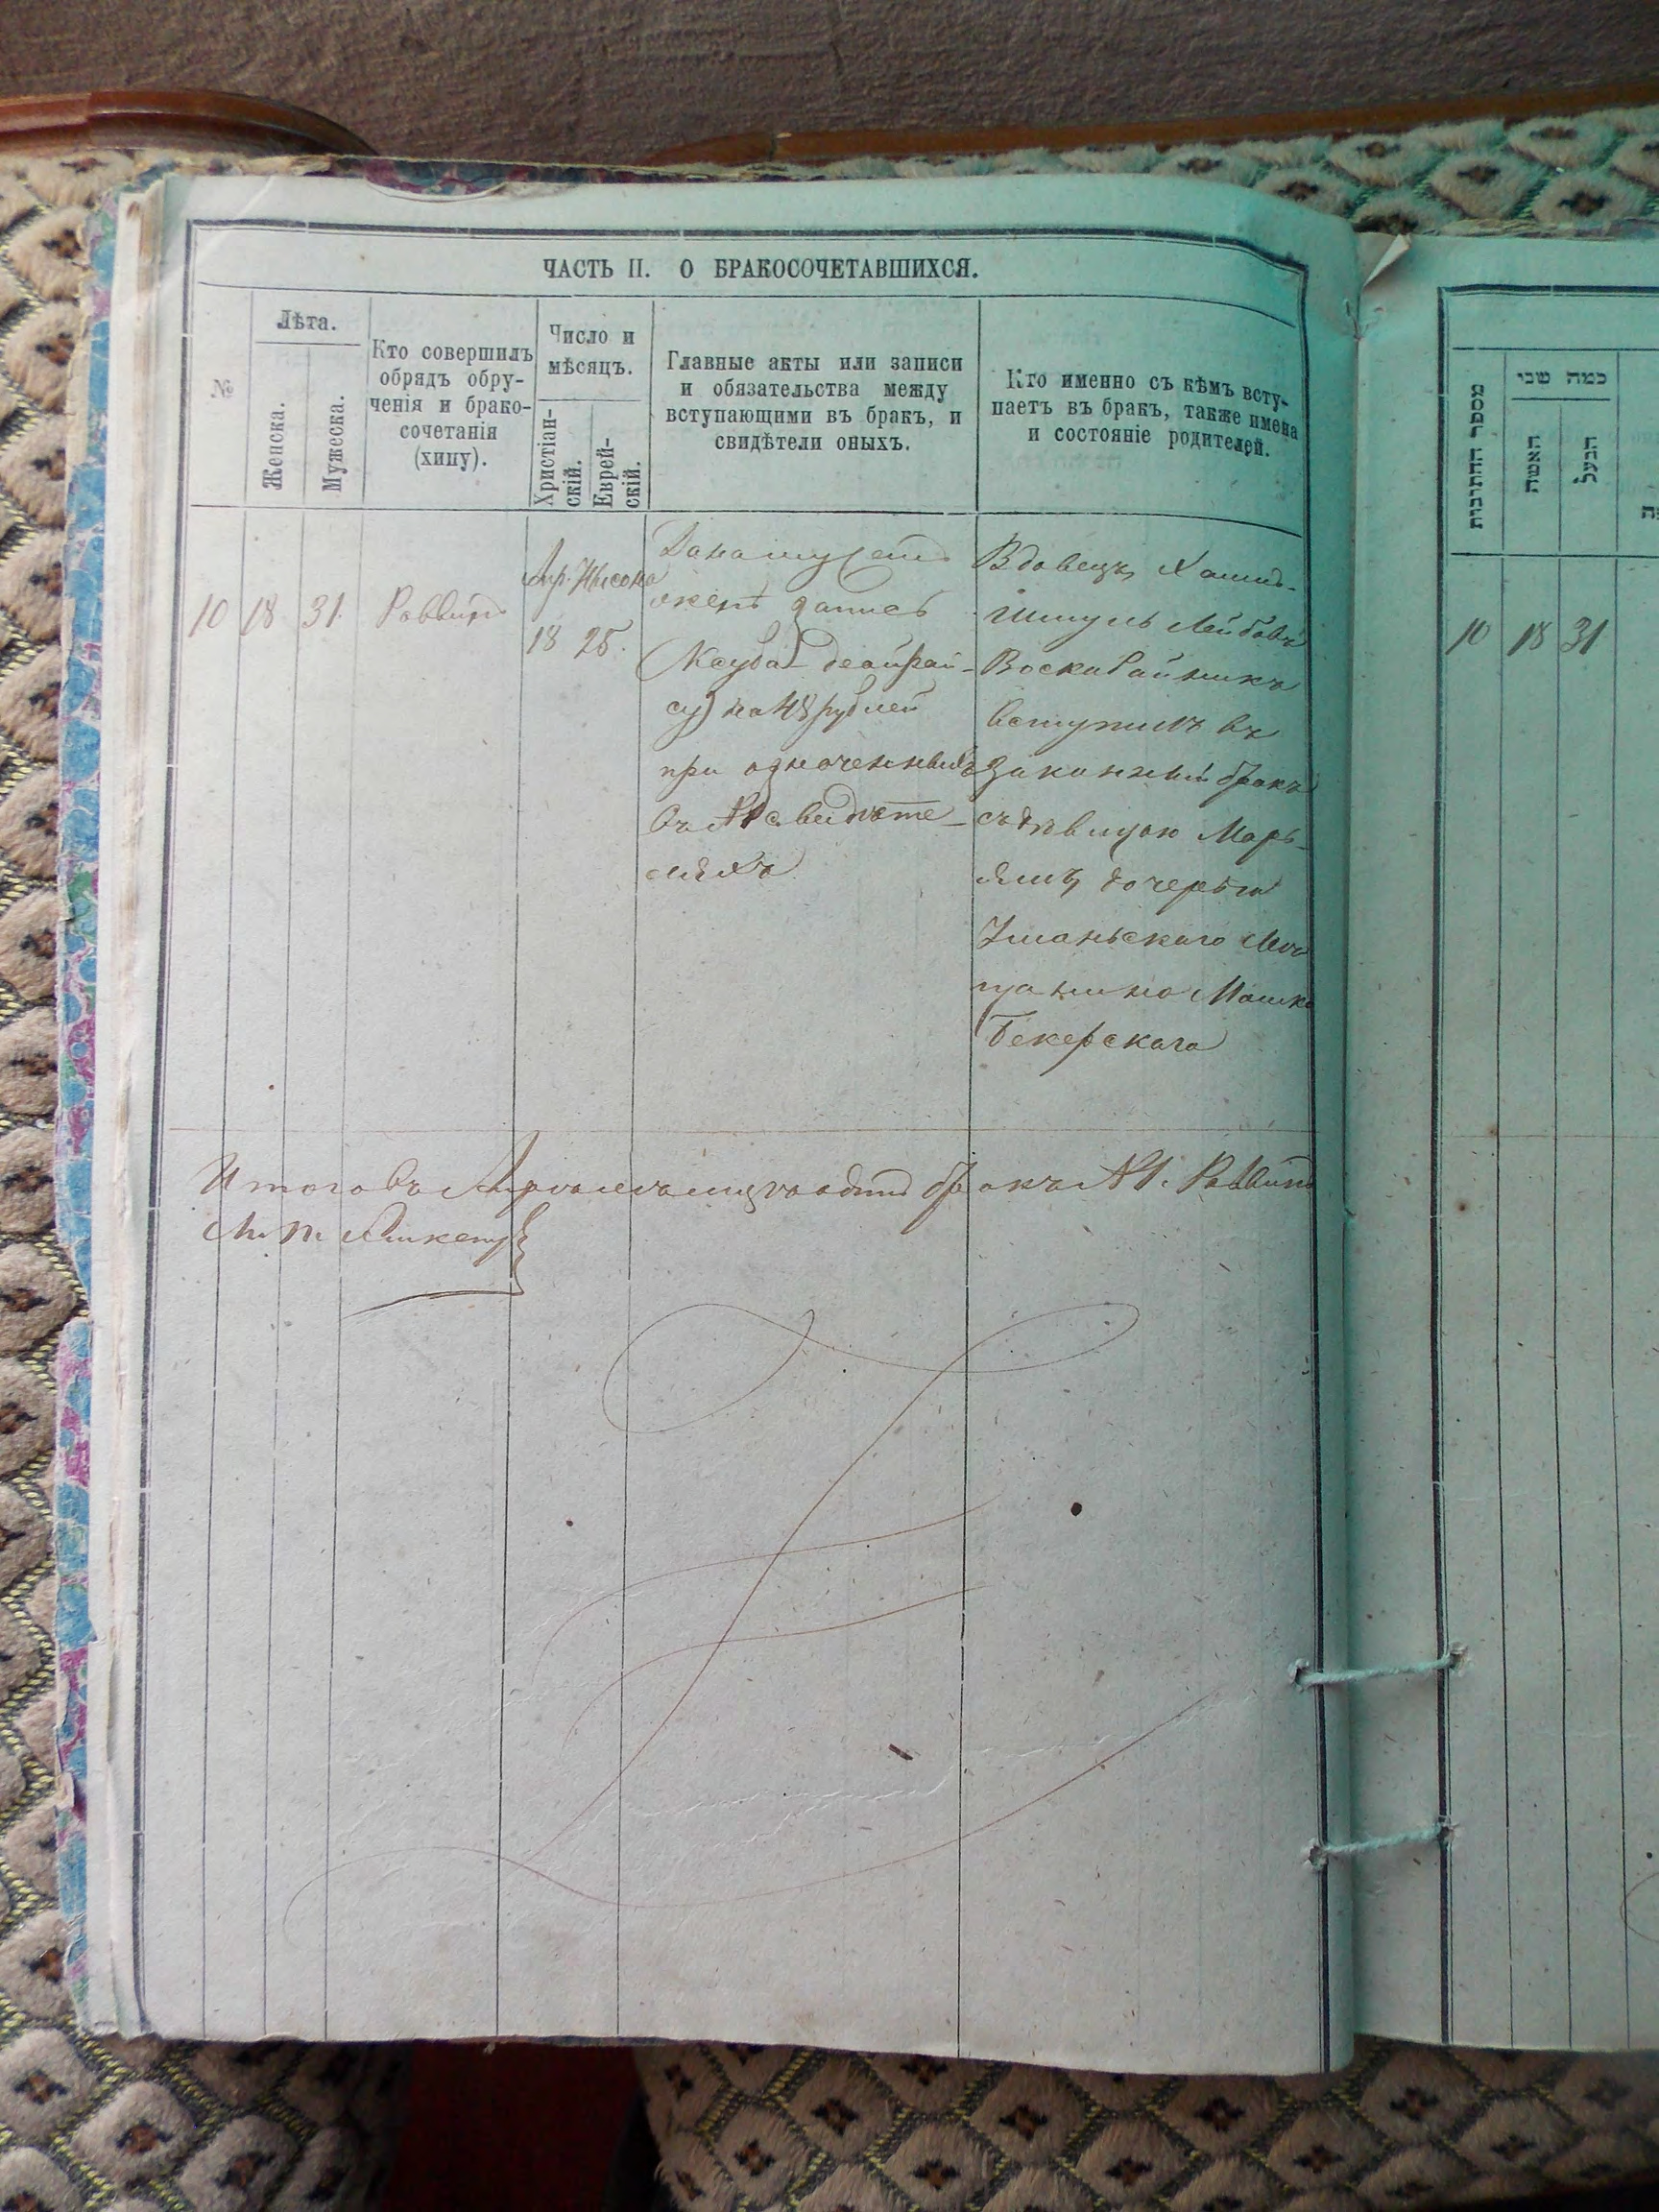 ЧАСТЬ II. О БРАКОСОЧЕТАВШИХСЯ.
№
Лѣта.
Женска.
Мужеска.
Кто совершилъ
обрядъ обру-
ченія и брако-
сочетанія
(хипу).
Число и
мѣсяцъ.
Христіан-
скій.
Еврей-
скій.
Главные акты или записи
и обязательства между
вступающими въ бракъ, и
свидѣтели оныхъ.
Кто именно съ кѣмъ всту-
паетъ въ бракъ, также имена
и состояніе родителей.
10
18
31.
Раввинъ
Апр.
18
25.
Дана мужемъ
женѣ запись
на 48 рублей
при
свидѣте-
ляхъ
Вдовецъ Хаимъ-
Шмуль Лейбовъ
вступилъ въ
законный бракъ
съ дѣвицою Марь-
дочерью
Уманьскаго Мѣ
щанина Мошка
Бекерскаго
Итого въ одинъ бракъ №1. Раввинъ
מספר החתונות
כמה שני
האשה
הבעל
10
18
31